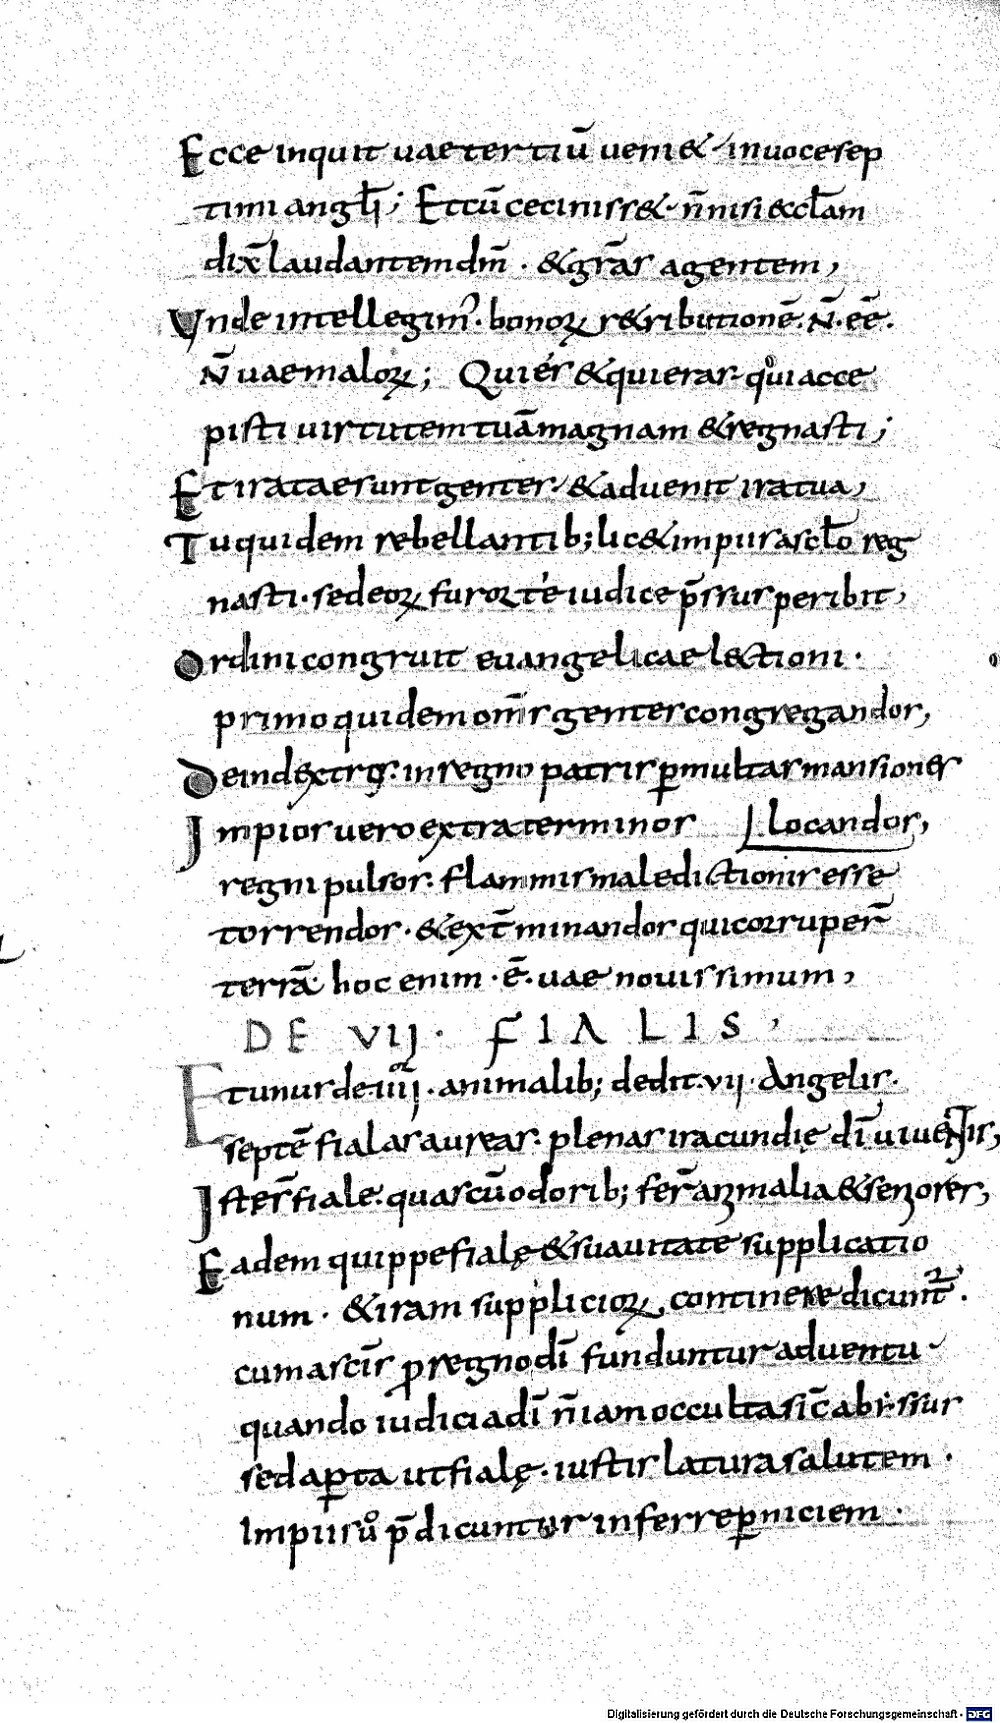 Ecce inquit uae tertiū ueni& in uoce sep
timi angƚi; Et cū cecinisset· n̄ nisi eccƚam
dix̄ laudantem dm̄ · & gr̄as agentem,
Unde intellegim' · bonoꝝ r&ributionē · N̄ · eē ·
N̄ uae maloꝝ ; Qui és & qui eras · qͦui acce
pisti uirtutem tuā magnam & regnasti ;
Et iratae sunt gentes · & aduenit ira tua,
Tu quidem rebellantib; lic& impiis a scƚo reg
nasti · sed eoꝝ furor té iudice p̄ssus peribit,
Ordini congruit euangelicae lectioni ·
primo quidem om̄is gentes congregandos,
Deind extrꝙ· in regno patris ꝑ multas mansiones
Impios uero extra terminos locandos,
regni pulsos · flammis maledictionis esse
torrendos · & ext̄minandos qui corruper̄
terrā · hoc enim · ē · uae nouissimum,
DE VII · FIALIS,
Et unus de · iiii · animalib; dedit · vii · Angelis ·
septē fialas aureas · plenas iracundię dī uiuentis,
Iste s̄ fiale · quas cū odorib; fer̄ animalia & seniores,
Eadem quippe fialę & suauitate supplicatio
num · & iram supplicioꝝ continere dicunt̄ ·
cum a scīs ꝓ regno dī funduntur aduentu ·
quando iudicia dī n̄ iam occulta sic̄ abissus
sed aꝑta ut fialę · iustis latura salutem ·
Impiis ů p̄dicuntur inferre ꝑniciem ·
Digitalisierung gefördert durch die Deutsche Forschungsgemeinschaft - DFG